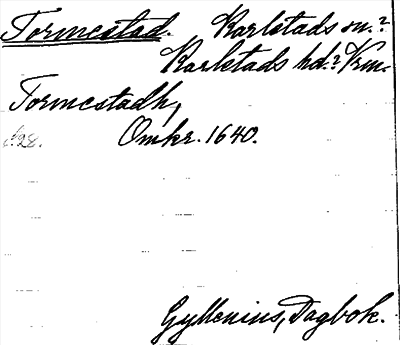 Tormestad. Karlstads sn.?
Karlstads hd.? Vrm.
Tormestadh,
s. 28. Omkr. 1640.
Gyllenius, Dagbok.